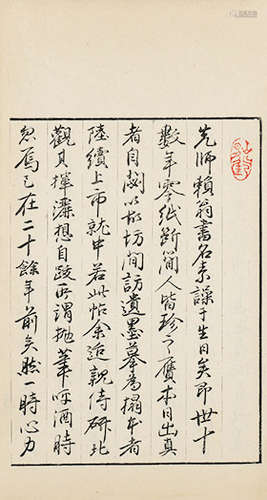 先師賴翁書名譟于生日矣即世十
數年零紙斷簡人皆珍之贋本日出真
者自以故坊間訪遺墨摹為搨本者
陸續上市就中若此帖余親侍研北
觀其揮灑想自跋所謂拋筆呼酒時
忽焉已在二十餘年前矣一時心力